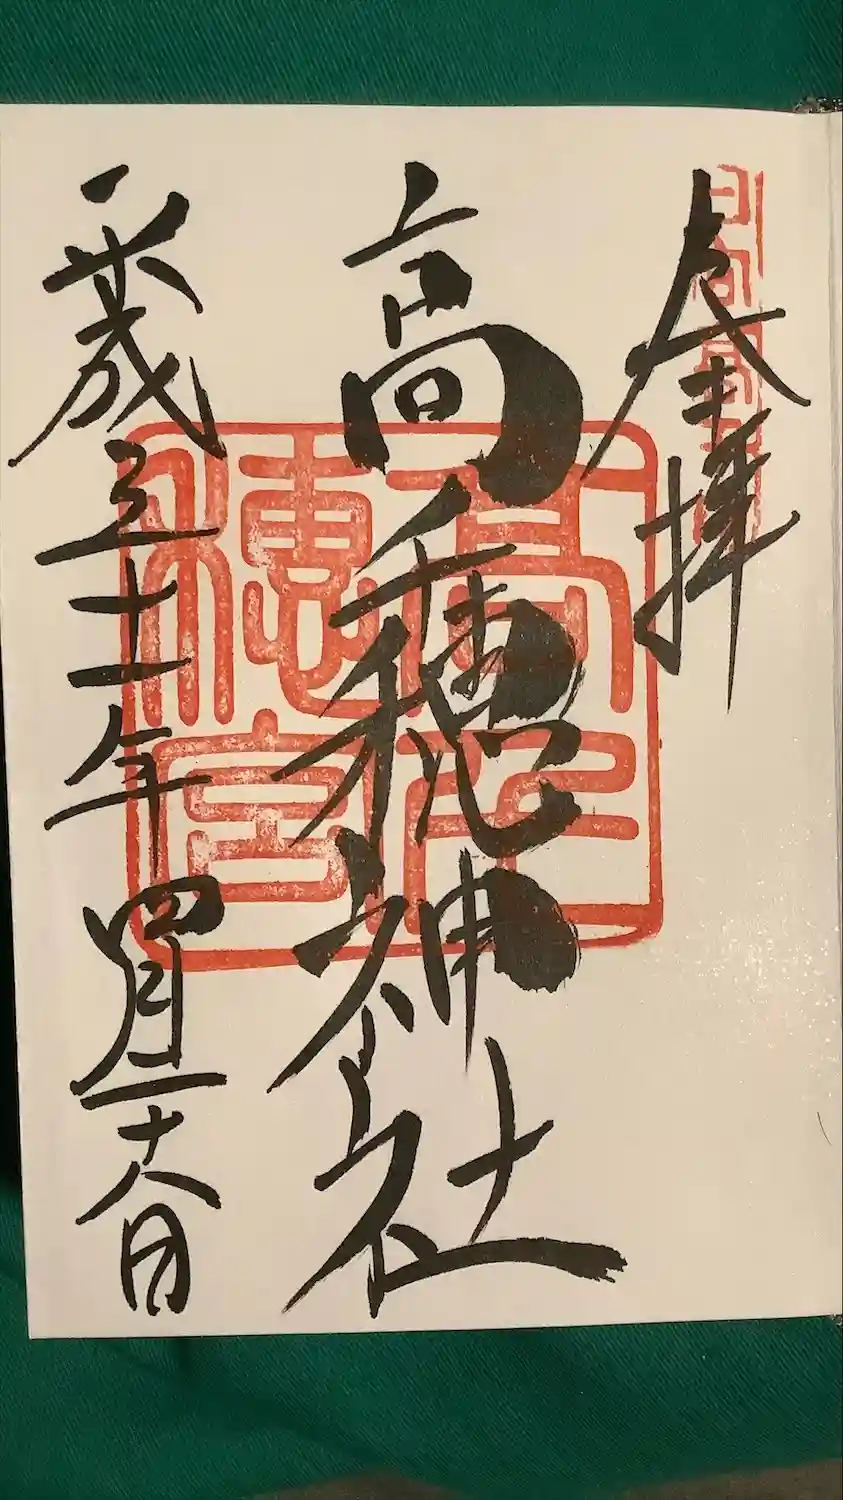 拝
高千穂神社
高千
穂宮
平成三十一年四月二十八日